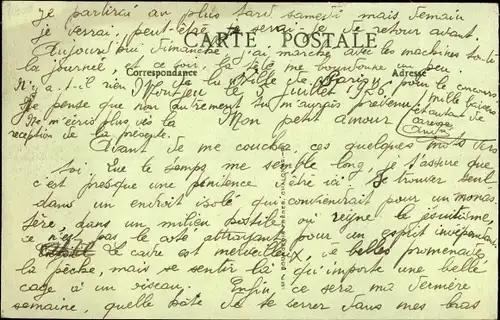 je partirai au plus tard samedi mais demain
je verrai, peut-être je serai de retour avant.
CARTE POSTALE
Aujourd'hui dimanche, j'ai marché avec les machines toute
la journée, et ce soir la tête me bourdonne un peu.
Correspondance
Adresse
N'y a-t-il rien de la Ville de Paris, pour le concours
Morlieu le 5 juillet 1926.
Je pense que non autrement tu m'aurais prévenu
1 mille baisers
et autant de
caresses
Ne m'écris plus dès la
réception de la présente.
Mon petit amour
Avant de me coucher, ces quelques mots vers
toi. Que le temps me semble long, je t'assure que
c'est presque une pénitence d'être ici. Je trouver seul
dans un endroit isolé qui conviendrait pour un monas
tère, dans un milieu hostile où règne le jésuitisme,
ce n'est pas le côté attrayant pour un esprit indépendant
Le cadre est merveilleux, de belles promenades,
la pêche, mais se sentir là qu'importe une belle
cage à un oiseau. Enfin, ce sera ma dernière
semaine, quelle hâte de te serrer dans mes bras